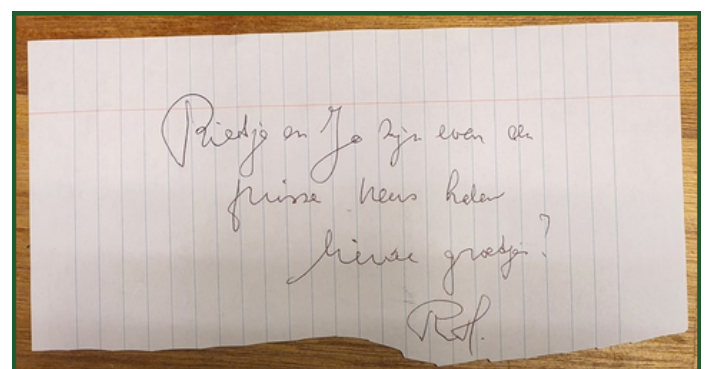 Rietje en Jo zijn even een
frisse neus halen
lieve groetjes!
R.H.